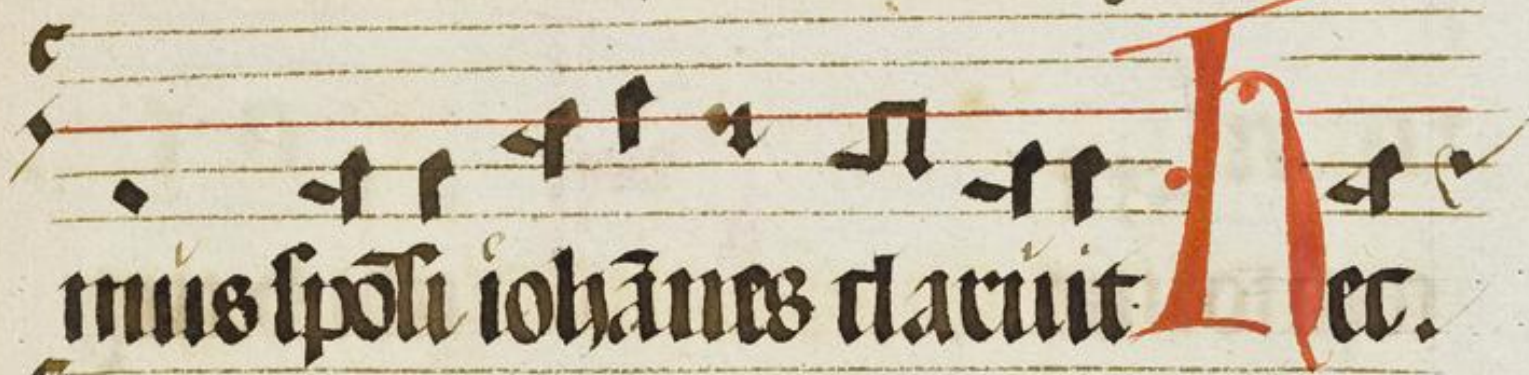 mus spōsi iohānes claruit. Hec.